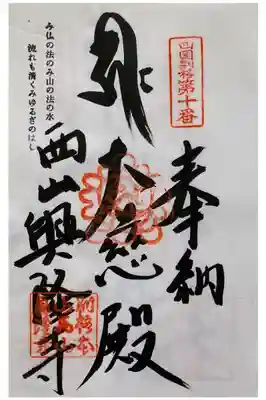 四国別格第十番
奉納
大慈殿
西山興隆寺
み仏の法のみ山の法の水
流れも清くみゆるぎのはし